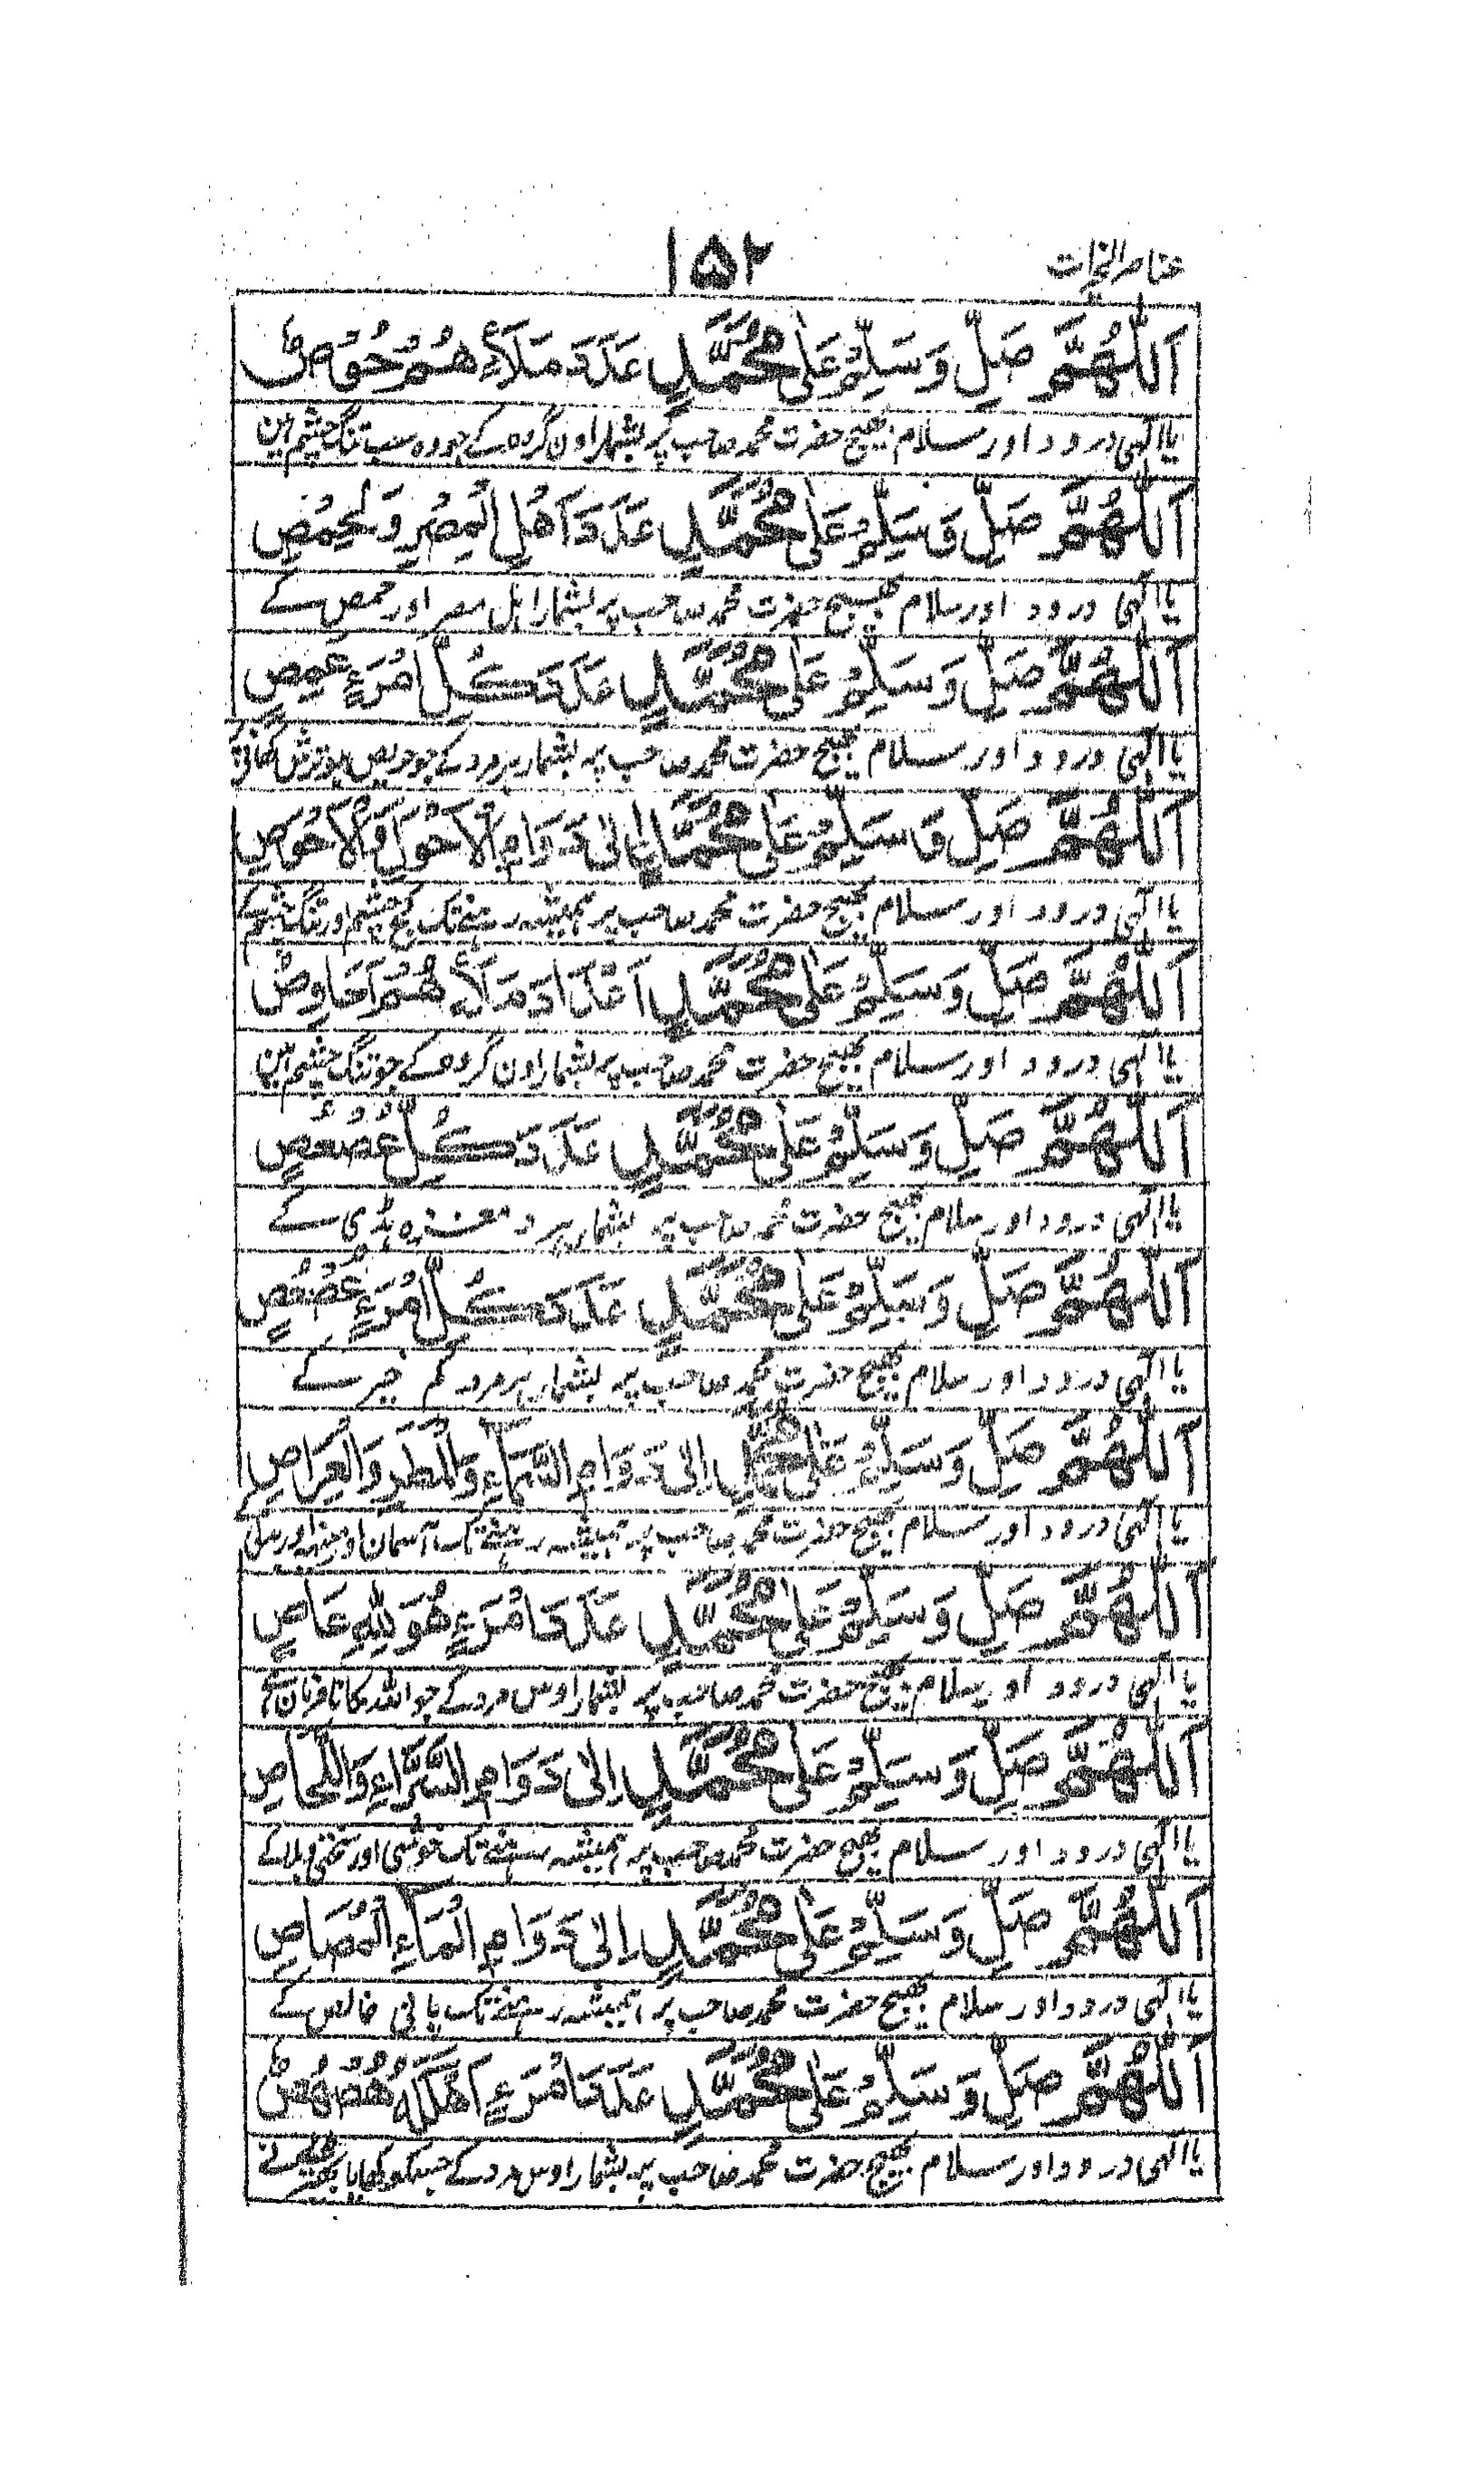 عناصر الخیرات
۱۵۲
اَللّٰهُمَّ صَلِّ وَسَلِّمْ عَلٰی مُحَمَّدٍ عَدَدَ مَلَاءٍ هُمْ حُوْصٌ
یا الٰہی درود اور سلام بھیج حضرت محمد صاحب پر بشمار اون گروہ کے جو وہ سب تنگ چشم ہین
اَللّٰهُمَّ صَلِّ وَسَلِّمْ عَلٰی مُحَمَّدٍ عَدَدَ اَهْلِ الْمِصْرِ وَلِحِمْصٍ
یا الٰہی درود اور سلام بھیج حضرت محمد صاحب پر بشمار اہل مصر اور حمص کے
اَللّٰهُمَّ صَلِّ وَسَلِّمْ عَلٰی مُحَمَّدٍ عَدَدَ كُلِّ امْرَءٍ عَمِصٍ
یا الٰہی درود اور سلام بھیج حضرت محمد صاحب پر بشمار ہر مرد کے جو حریص ہو ترش کھانے
اَللّٰهُمَّ صَلِّ وَسَلِّمْ عَلٰی مُحَمَّدٍ اِلٰی دَوَامِ الْاَحْوَلِ وَالْاَحْوَصِ
یا الٰہی درود اور سلام بھیج حضرت محمد صاحب پر ہمیشہ رہنے تک کج چشم اور تنگ چشم کے
اَللّٰهُمَّ صَلِّ وَسَلِّمْ عَلٰی مُحَمَّدٍ اَعْدَادَ مَلَاءٍ هُمْ اَحَاوِصُ
یا الٰہی درود اور سلام بھیج حضرت محمد صاحب پر بشمار اون گروہ کے جو تنگ چشم ہین
اَللّٰهُمَّ صَلِّ وَسَلِّمْ عَلٰی مُحَمَّدٍ عَدَدَ كُلِّ عُصْعُصٍ
یا الٰہی درود اور سلام بھیج حضرت محمد صاحب پر بشمار ہر دمغزہ ہڈی کے
اَللّٰهُمَّ صَلِّ وَسَلِّمْ عَلٰی مُحَمَّدٍ عَدَدَ كُلِّ امْرَءٍ عُصْعُصٍ
یا الٰہی درود اور سلام بھیج حضرت محمد صاحب پر بشمار ہر مرد کم خیر کے
اَللّٰهُمَّ صَلِّ وَسَلِّمْ عَلٰی مُحَمَّدٍ اِلٰی دَوَامِ السَّمَاءِ وَالْمَطَرِ وَالْعِرَاصِ
یا الٰہی درود اور سلام بھیج حضرت محمد صاحب پر ہمیشہ رہنے تک آسمان اور مینہ اور کے
اَللّٰهُمَّ صَلِّ وَسَلِّمْ عَلٰی مُحَمَّدٍ عَدَدَ امْرَءٍ هُوَ لِلّٰهِ عَاصٍ
یا الٰہی درود اور سلام بھیج حضرت محمد صاحب پر بشمار اوس مرد کے جو اللہ کا نافرمان ہے
اَللّٰهُمَّ صَلِّ وَسَلِّمْ عَلٰی مُحَمَّدٍ اِلٰی دَوَامِ السَّرَّاءِ وَاللَّحَاصِ
یا الٰہی درود اور سلام بھیج حضرت محمد صاحب پر ہمیشہ رہنے تک خوشی اور سختی و بلا کے
اَللّٰهُمَّ صَلِّ وَسَلِّمْ عَلٰی مُحَمَّدٍ اِلٰی دَوَامِ الْمَاءِ الْمُصَاصِ
یا الٰہی درود اور سلام بھیج حضرت محمد صاحب پر ہمیشہ رہنے تک پانی خالص کے
اَللّٰهُمَّ صَلِّ وَسَلِّمْ عَلٰی مُحَمَّدٍ عَدَدَ امْرَءٍ اَكَلَهٗ هُصْهُصٌ
یا الٰہی درود اور سلام بھیج حضرت محمد صاحب پر بشمار اوس مرد کے جسکو کھایا نے